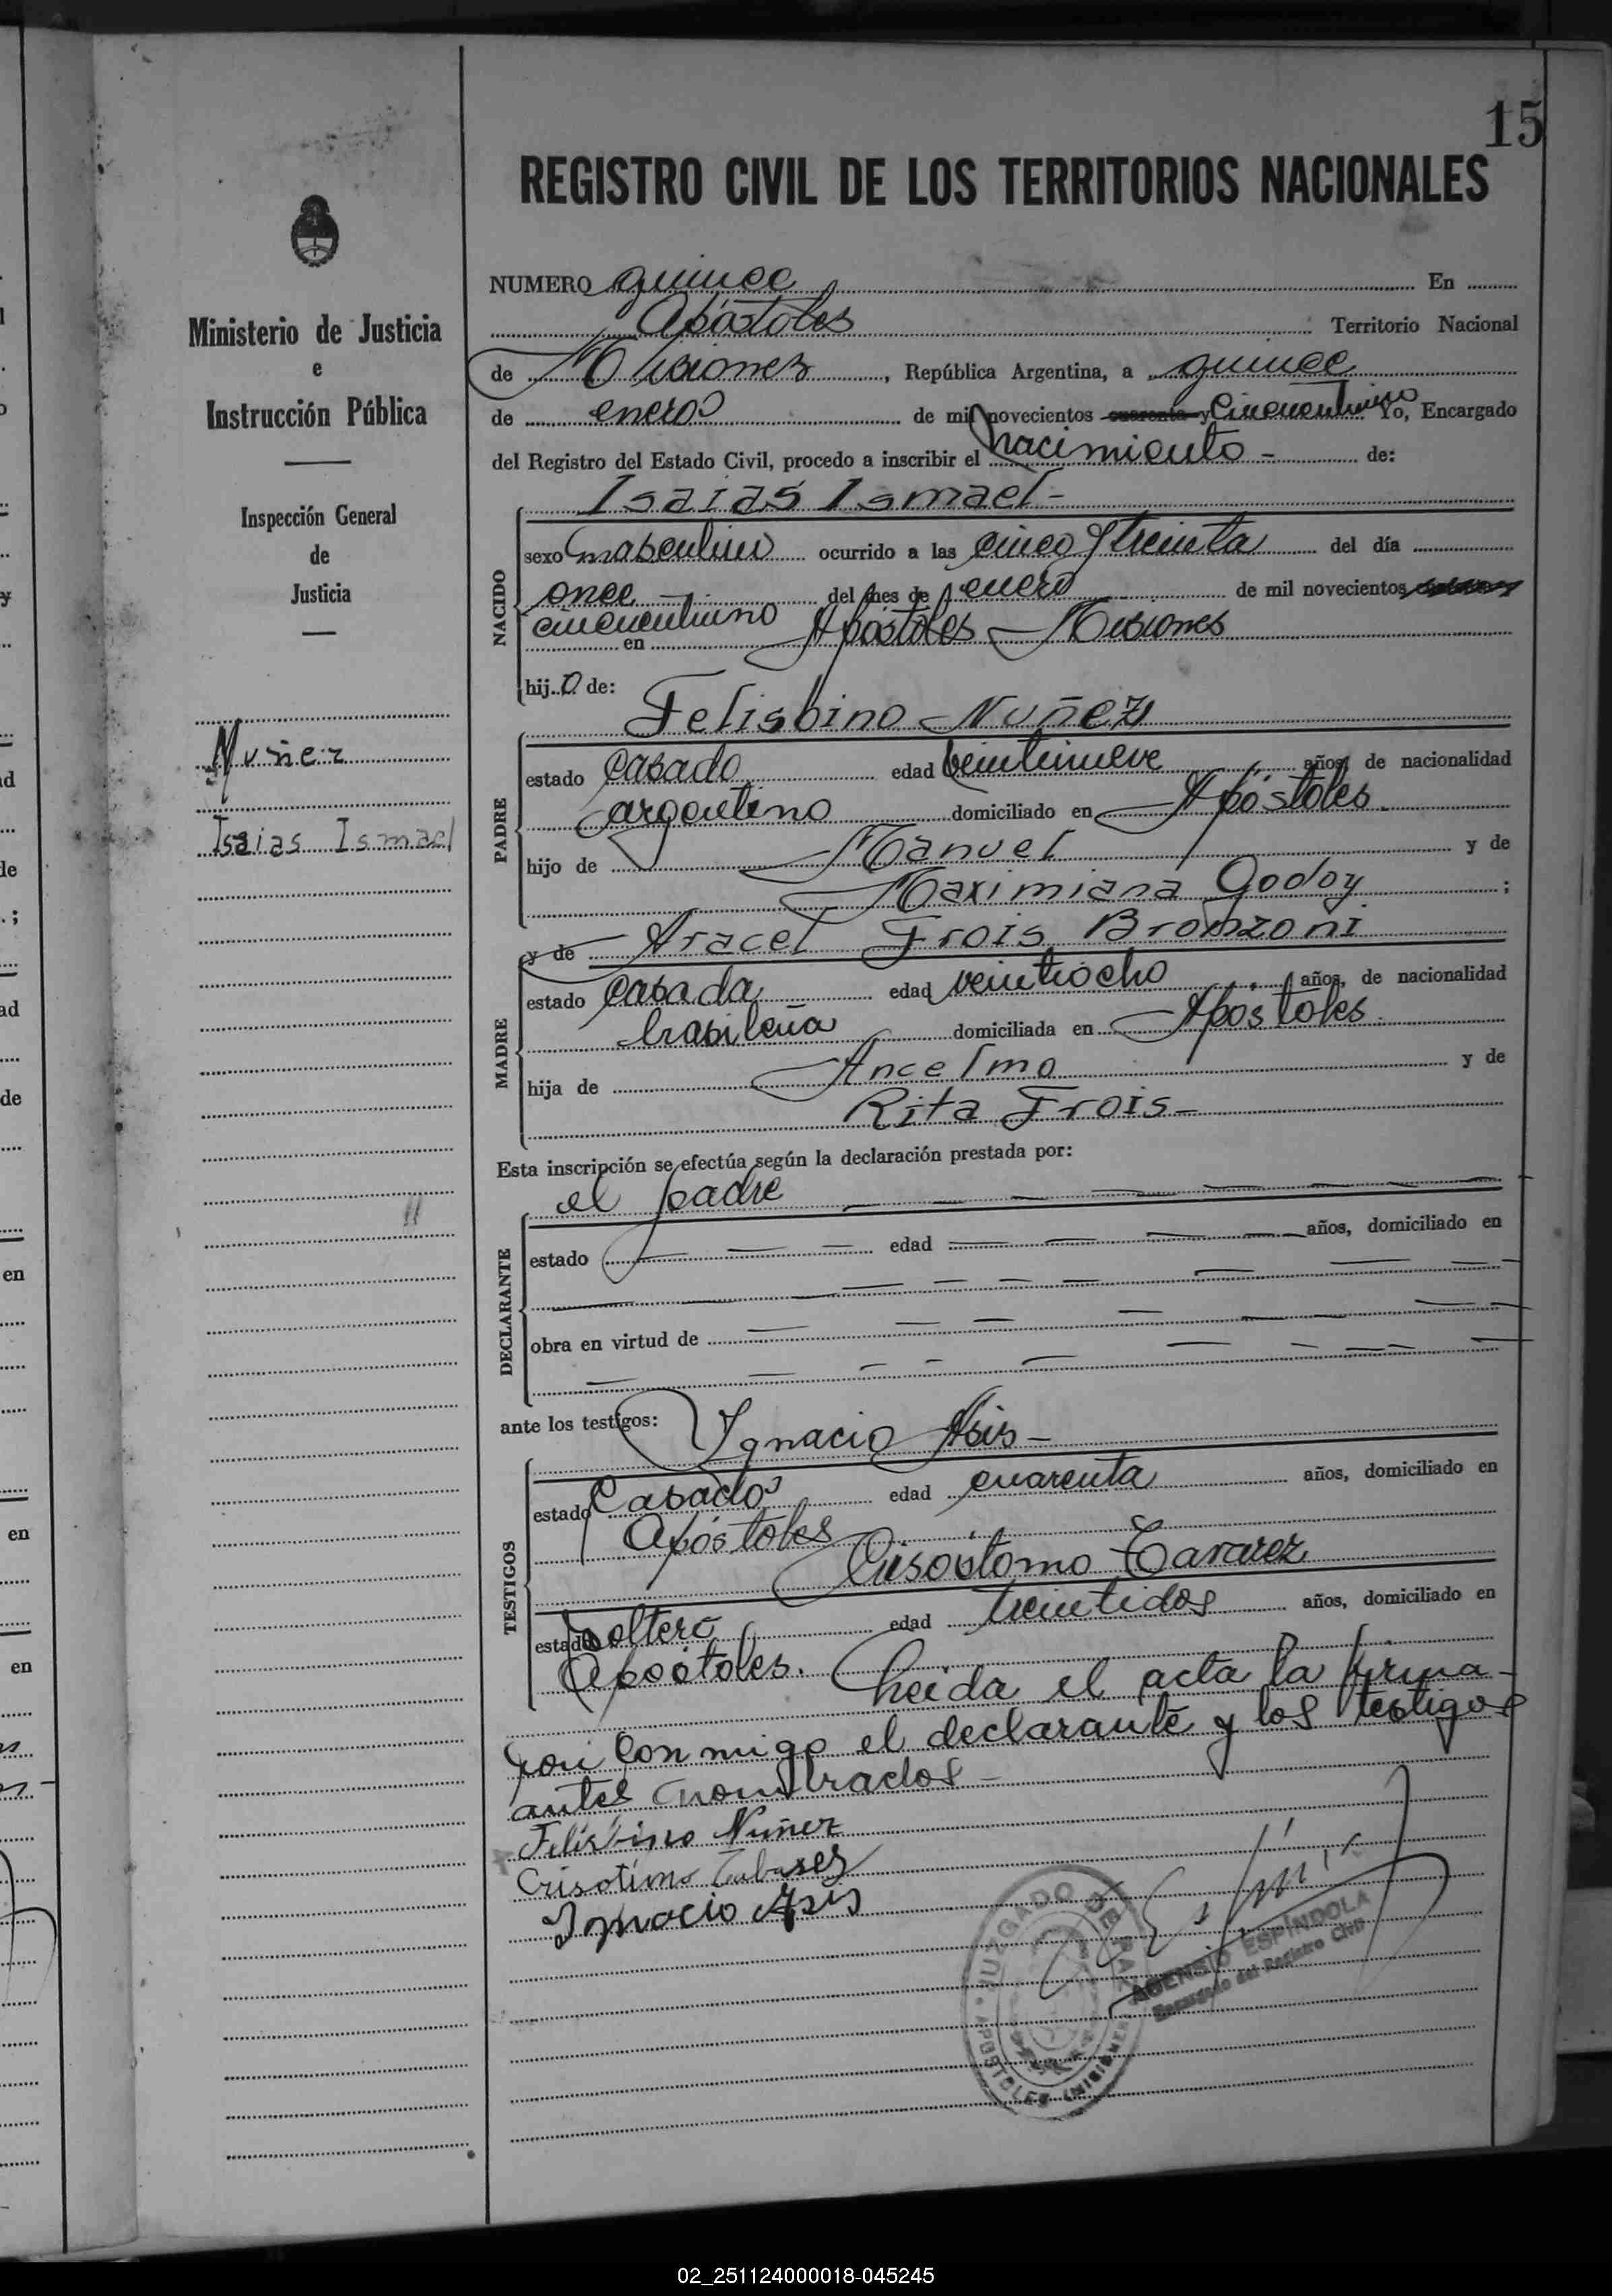 15
REGISTRO CIVIL DE LOS TERRITORIOS NACIONALES
Ministerio de Justicia
e
Instrucción Pública
Inspección General
de
Justicia
Nuñez
Isaias Ismael
NUMERO quince En
Apóstoles Territorio Nacional
de Misiones, República Argentina, a quince
de enero de mil novecientos cuarenta y cincuentiuno Yo, Encargado
del Registro del Estado Civil, procedo a inscribir el nacimiento - de:
Isaias Ismael-
NACIDO
sexo masculino ocurrido a las cinco y treinta del día
once del mes de enero de mil novecientos
cincuentiuno en Apóstoles - Misiones
hijo de:
Felisbino Nuñez
PADRE
estado casado edad veintinueve años, de nacionalidad
argentino domiciliado en Apóstoles.
hijo de Manuel y de
Maximiana Godoy ;
y de Aracel Frois Bronzoni
MADRE
estado casada edad veintiocho años, de nacionalidad
brasileña domiciliada en Apóstoles.
hija de Ancelmo y de
Rita Frois-
Esta inscripción se efectúa según la declaración prestada por:
el padre
DECLARANTE
estado edad años, domiciliado en
obra en virtud de
ante los testigos: Ignacio Asis-
TESTIGOS
estado Casado edad cuarenta años, domiciliado en
Apóstoles
Crisóstomo Tavarez
estado Soltero edad treintidos años, domiciliado en
Apóstoles. Leida el acta la firma-
ron conmigo el declarante y los testigos
antes nombrados-
Felisbino Nuñez
Crisotimo Tabarez
Ignacio Asis
JUZGADO DE PAZ
APOSTOLES (MISIONES)
ASENSIO ESPINDOLA
Encargado del Registro Civil
02_251124000018-045245